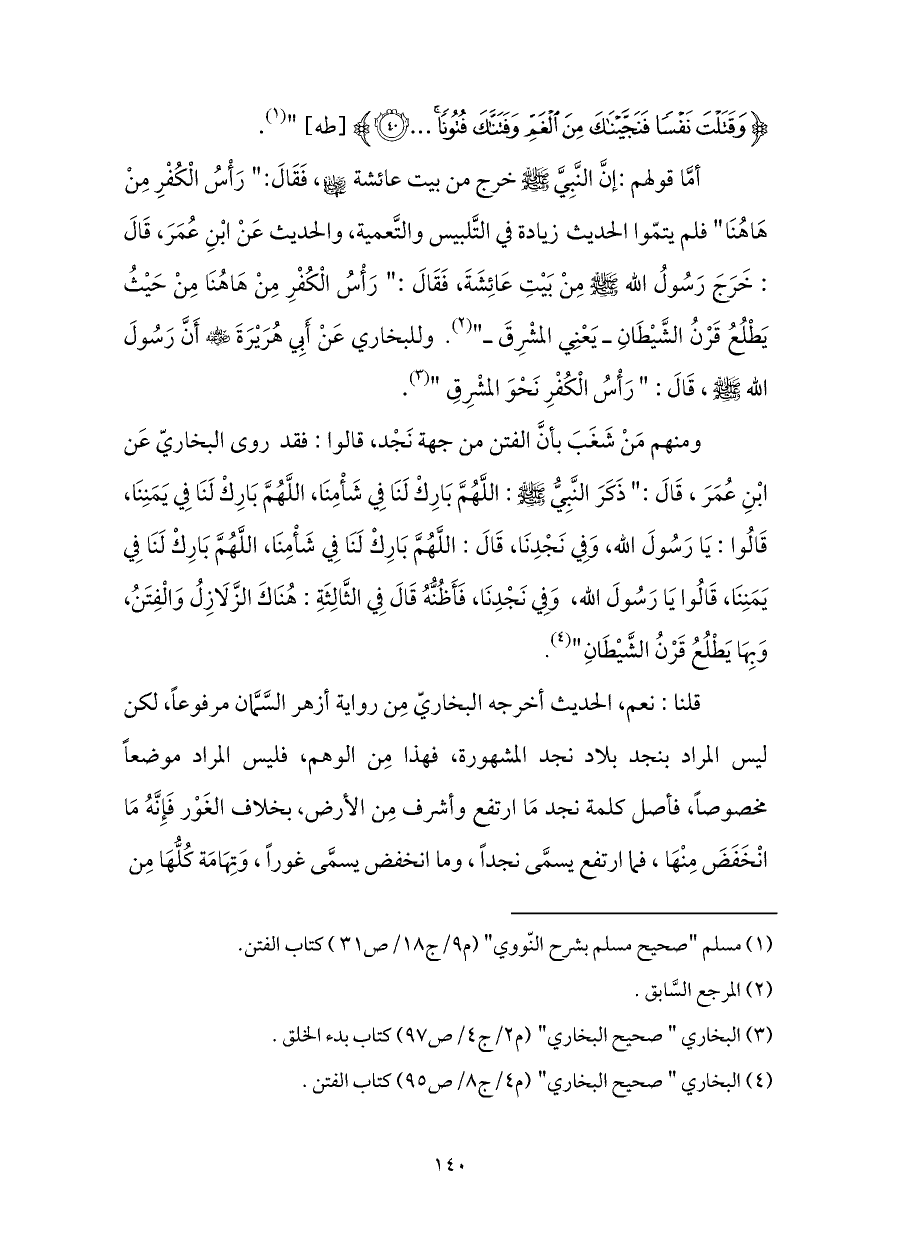 ﴿ وَقَتَلْتَ نَفْسًا فَنَجَّيْنَاكَ مِنَ ٱلْغَمِّ وَفَتَنَّاكَ فُتُونًا ۚ ... ٤٠ ﴾ [طه] "(١).
أمَّا قولهم :إنَّ النَّبِيَّ ﷺ خرج من بيت عائشة رضي الله عنها ، فَقَالَ:" رَأْسُ الْكُفْرِ مِنْ
هَاهُنَا" فلم يتمّوا الحديث زيادة في التَّلبيس والتَّعمية، والحديث عَنْ ابْنِ عُمَرَ، قَالَ
: خَرَجَ رَسُولُ الله ﷺ مِنْ بَيْتِ عَائِشَةَ، فَقَالَ :" رَأْسُ الْكُفْرِ مِنْ هَاهُنَا مِنْ حَيْثُ
يَطْلُعُ قَرْنُ الشَّيْطَانِ ـ يَعْنِي المشْرِقَ ـ"(٢). وللبخاري عَنْ أَبِي هُرَيْرَةَ رضي الله عنه أَنَّ رَسُولَ
الله ﷺ ، قَالَ : " رَأْسُ الْكُفْرِ نَحْوَ المشْرِقِ "(٣).
ومنهم مَنْ شَغَبَ بأنَّ الفتن من جهة نَجْد، قالوا : فقد روى البخاريّ عَن
ابْنِ عُمَرَ ، قَالَ :" ذَكَرَ النَّبِيُّ ﷺ : اللَّهُمَّ بَارِكْ لَنَا فِي شَأْمِنَا، اللَّهُمَّ بَارِكْ لَنَا فِي يَمَنِنَا،
قَالُوا : يَا رَسُولَ الله، وَفِي نَجْدِنَا، قَالَ : اللَّهُمَّ بَارِكْ لَنَا فِي شَأْمِنَا، اللَّهُمَّ بَارِكْ لَنَا فِي
يَمَنِنَا، قَالُوا يَا رَسُولَ الله، وَفِي نَجْدِنَا، فَأَظُنُّهُ قَالَ فِي الثَّالِثَةِ : هُنَاكَ الزَّلَازِلُ وَالْفِتَنُ،
وَبِهَا يَطْلُعُ قَرْنُ الشَّيْطَانِ"(٤).
قلنا : نعم، الحديث أخرجه البخاريّ مِن رواية أزهر السَّمَّان مرفوعاً، لكن
ليس المراد بنجد بلاد نجد المشهورة، فهذا مِن الوهم، فليس المراد موضعاً
مخصوصاً، فأصل كلمة نجد مَا ارتفع وأشرف مِن الأرض، بخلاف الغَوْر فَإِنَّهُ مَا
انْخَفَضَ مِنْهَا ، فما ارتفع يسمَّى نجداً ، وما انخفض يسمَّى غوراً ، وَتِهَامَة كُلُّهَا مِن
(١) مسلم "صحيح مسلم بشرح النّووي" (م٩/ ج١٨/ ص٣١ ) كتاب الفتن.
(٢) المرجع السَّابق .
(٣) البخاري " صحيح البخاري" (م٢/ ج٤/ ص٩٧) كتاب بدء الخلق .
(٤) البخاري " صحيح البخاري" (م٤/ ج٨/ ص٩٥) كتاب الفتن .
١٤٠